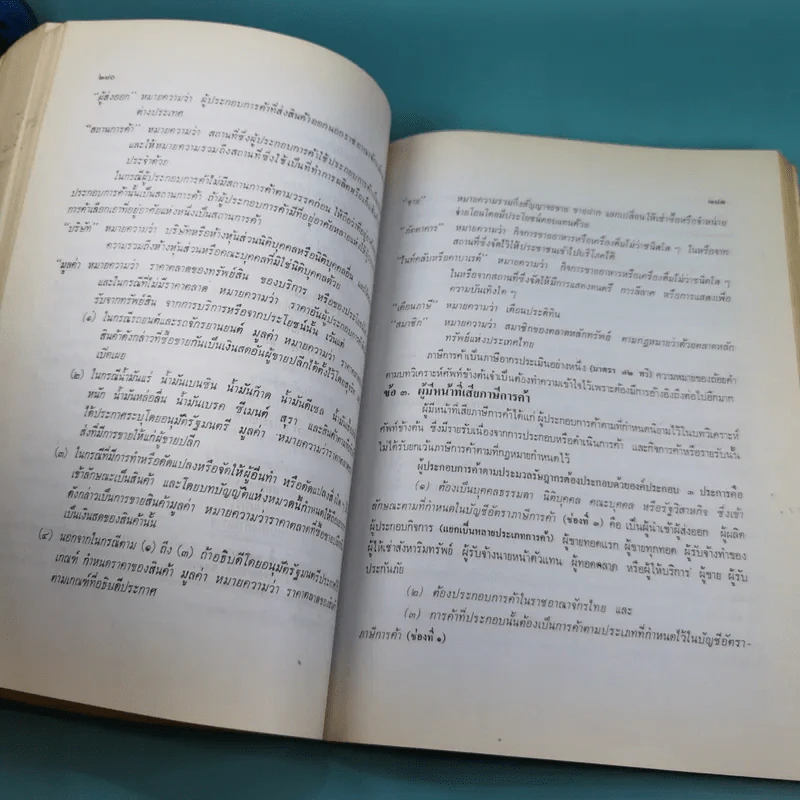 ๒๗๐
"ผู้ส่งออก" หมายความว่า ผู้ประกอบการค้าที่ส่งสินค้าออกนอกราชอาณาจักร
ต่างประเทศ
"สถานการค้า" หมายความว่า สถานที่ซึ่งผู้ประกอบการค้าใช้ประกอบการค้า
และให้หมายความรวมถึงสถานที่ซึ่งใช้เป็นที่ทำการผลิตหรือเก็บสินค้า
ประจำด้วย
ในกรณีผู้ประกอบการค้าไม่มีสถานการค้าตามวรรคก่อน ให้ถือว่าที่อยู่
ประกอบการค้านั้นเป็นสถานการค้า ถ้าผู้ประกอบการค้ามีที่อยู่อาศัยหลายแห่ง
การค้าเลือกเอาที่อยู่อาศัยแห่งหนึ่งเป็นสถานการค้า
"บริษัท" หมายความว่า บริษัทหรือห้างหุ้นส่วนนิติบุคคลหรือนิติบุคคลอื่น
ความรวมถึงห้างหุ้นส่วนหรือคณะบุคคลที่มิใช่นิติบุคคลด้วย
"มูลค่า" หมายความว่า ราคาตลาดของทรัพย์สิน ของบริการ หรือของประโยชน์
และในกรณีที่ไม่มีราคาตลาด หมายความว่า ราคาอันผู้ประกอบการค้า
รับจากทรัพย์สิน จากการบริการหรือจากประโยชน์นั้น เว้นแต่
(๑) ในกรณีรถยนต์และรถจักรยานยนต์ มูลค่า หมายความว่า ราคา
สินค้าดังกล่าวที่ซื้อขายกันเป็นเงินสดอันผู้ขายปลีกได้ตั้งไว้โดยสุจริต
เปิดเผย
(๒) ในกรณีน้ำมันแร่ น้ำมันเบนซิน น้ำมันก๊าด น้ำมันดีเซล
หนัก น้ำมันหล่อลื่น น้ำมันเบรค ซีเมนต์ สุรา และสินค้า
ได้ประกาศระบุโดยอนุมัติรัฐมนตรี มูลค่า หมายความว่า ราคาตลาด
ส่งที่มีการขายให้แก่ผู้ขายปลีก
(๓) ในกรณีที่มีการทำหรือดัดแปลงหรือจัดให้ผู้อื่นทำ หรือดัดแปลงสิ่งใด ๆ
เข้าลักษณะเป็นสินค้า และโดยบทบัญญัติแห่งหมวดนี้กำหนดให้ถือ
ดังกล่าวเป็นการขายสินค้ามูลค่า หมายความว่าราคาตลาดที่ซื้อขาย
เป็นเงินสดของสินค้านั้น
(๔) นอกจากในกรณีตาม (๑) ถึง (๓) ถ้าอธิบดีโดยอนุมัติรัฐมนตรีประกาศ
เกณฑ์ กำหนดราคาของสินค้า มูลค่า หมายความว่า ราคาตลาดของสินค้า
ตามเกณฑ์ที่อธิบดีประกาศ
๒๗๑
"ขาย" หมายความรวมถึงสัญญาจะขาย ขายฝาก แลกเปลี่ยนให้เช่าซื้อหรือจำหน่าย
จ่ายโอนโดยมีประโยชน์ตอบแทนด้วย
"ภัตตาคาร" หมายความว่า กิจการขายอาหารหรือเครื่องดื่มไม่ว่าชนิดใด ๆ ในหรือจาก
สถานที่ซึ่งจัดไว้ให้ประชาชนเข้าไปบริโภคได้
"ไนท์คลับหรือคาบาเรต์" หมายความว่า กิจการขายอาหารหรือเครื่องดื่มไม่ว่าชนิดใด ๆ
ในหรือจากสถานที่ซึ่งจัดให้มีการแสดงดนตรี การลีลาศ หรือการแสดงเพื่อ
ความบันเทิงใด ๆ
"เดือนภาษี" หมายความว่า เดือนประดิทิน
"สมาชิก" หมายความว่า สมาชิกของตลาดหลักทรัพย์ ตามกฎหมายว่าด้วยตลาดหลัก
ทรัพย์แห่งประเทศไทย
ภาษีการค้าเป็นภาษีอากรประเมินอย่างหนึ่ง (มาตรา ๗๗ ทวิ) ความหมายของถ้อยคำ
ตามบทวิเคราะห์ศัพท์ข้างต้นจำเป็นต้องทำความเข้าใจไว้เพราะต้องมีการอ้างอิงถึงต่อไปอีกมาก
ข้อ ๓. ผู้มีหน้าที่เสียภาษีการค้า
ผู้มีหน้าที่เสียภาษีการค้าได้แก่ ผู้ประกอบการค้าตามที่กำหนดนิยามไว้ในบทวิเคราะห์
ศัพท์ข้างต้น ซึ่งมีรายรับเนื่องจากการประกอบหรือดำเนินการค้า และกิจการค้าหรือรายรับนั้น
ไม่ได้รับยกเว้นภาษีการค้าตามที่กฎหมายกำหนดไว้
ผู้ประกอบการค้าตามประมวลรัษฎากรต้องประกอบด้วยองค์ประกอบ ๓ ประการคือ
(๑) ต้องเป็นบุคคลธรรมดา นิติบุคคล คณะบุคคล หรือรัฐวิสาหกิจ ซึ่งเข้า
ลักษณะตามที่กำหนดในบัญชีอัตราภาษีการค้า (ช่องที่ ๓) คือ เป็นผู้นำเข้าผู้ส่งออก ผู้ผลิต
ผู้ประกอบกิจการ (แยกเป็นหลายประเภทการค้า) ผู้ขายทอดแรก ผู้ขายทุกทอด ผู้รับจ้างทำของ
ผู้ให้เช่าสังหาริมทรัพย์ ผู้รับจ้างนายหน้าตัวแทน ผู้ทอดตลาด หรือผู้ให้บริการ ผู้ขาย ผู้รับ
ประกันภัย
(๒) ต้องประกอบการค้าในราชอาณาจักรไทย และ
(๓) การค้าที่ประกอบนั้นต้องเป็นการค้าตามประเภทที่กำหนดไว้ในบัญชีอัตรา-
ภาษีการค้า (ช่องที่ ๑)